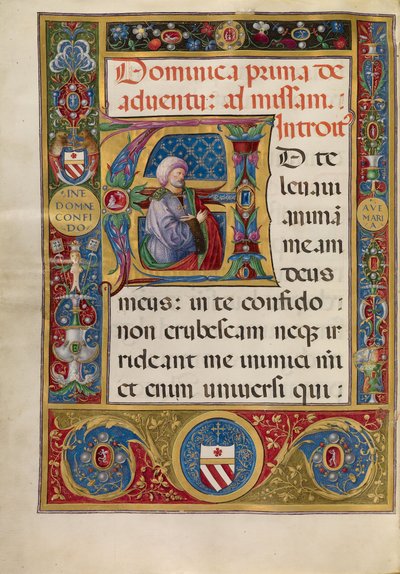 Dominica prima de
aduentu: ad missam.
Introit
AD te
leuaui
animã
meam
deus
meus: in te confido
non erubescam neq ir
rideant me inimici
et enim uniuersi qui:
IN E
DOMNE
CONFI
DO
AVE
MARI
A